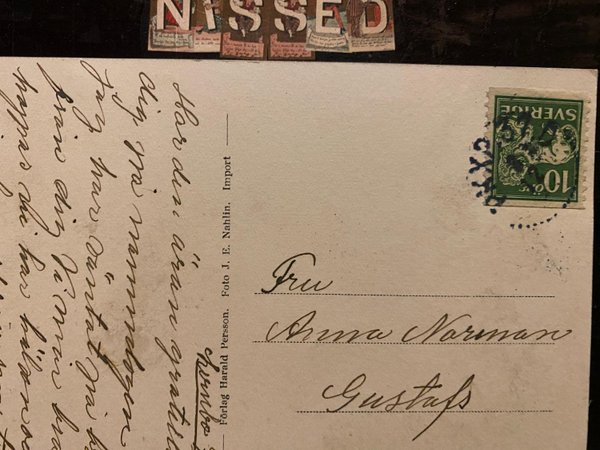 NISSED
SVERIGE
10 öre
Har den äran gratul
dig på namnsdagen
Jag har väntat på b
från dig
hoppas du har
Förlag Harald Persson. Foto J. E. Nahlin. Import
Fru
Anna Norman
Gustafs